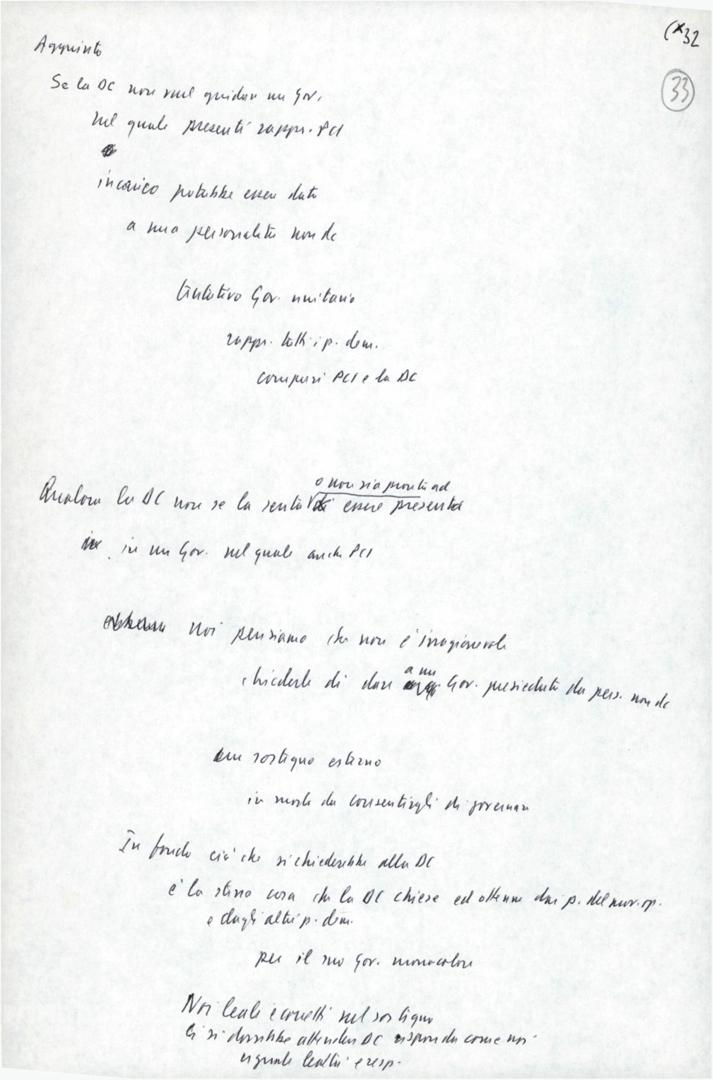 (x32
33
Aggiunta
Se la DC non vuol guidare un Gov.
nel quale presenti rappr. PCI
incarico potrebbe esser dato
a una personalità non dc
tentativo Gov. unitario
rappr. tutti i p. dem.
compresi PCI e la DC
o non sia pronta ad
Qualora la DC non se la senta di essere presente
in un Gov. nel quale anche PCI
noi pensiamo che non è irragionevole
a un
chiederle di dare Gov. presieduto da pers. non dc
un sostegno esterno
in modo da consentirgli di governare
In fondo ciò che si chiederebbe alla DC
è la stessa cosa che la DC chiese ed ottenne dai p. del mov. op.
e dagli altri p. dem.
per il suo Gov. monocolore
Noi leali e corretti nel sostegno
ci si dovrebbe attendere DC risponda come noi
uguale lealtà e resp.